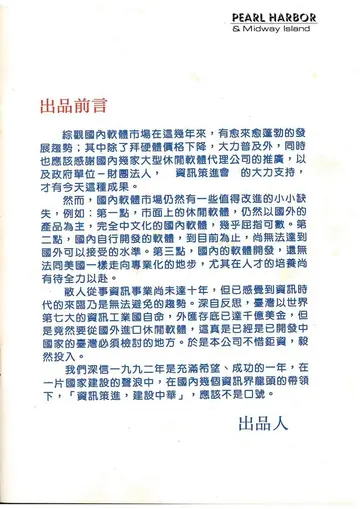 PEARL HARBOR
& Midway Island
出品前言
綜觀國內軟體市場在這幾年來，有愈來愈蓬勃的發
展趨勢；其中除了拜硬體價格下降，大力普及外，同時
也應該感謝國內幾家大型休閒軟體代理公司的推廣，以
及政府單位－財團法人， 資訊策進會 的大力支持，
才有今天這種成果。
然而，國內軟體市場仍然有一些值得改進的小小缺
失，例如：第一點，市面上的休閒軟體，仍然以國外的
產品為主，完全中文化的國內軟體，幾乎屈指可數。第
二點，國內自行開發的軟體，到目前為止，尚無法達到
國外可以接受的水準。第三點，國內的軟體開發，還無
法同美國一樣走向專業化的地步，尤其在人才的培養尚
有待全力以赴。
敝人從事資訊事業尚未達十年，但已感覺到資訊時
代的來臨乃是無法避免的趨勢。深自反思，臺灣以世界
第七大的資訊工業國自命，外匯存底已達千億美金，但
是竟然要從國外進口休閒軟體，這真是已經是已開發中
國家的臺灣必須檢討的地方。於是本公司不惜鉅資，毅
然投入。
我們深信一九九二年是充滿希望、成功的一年，在
一片國家建設的聲浪中，在國內幾個資訊界龍頭的帶領
下，「資訊策進，建設中華」，應該不是口號。
出品人